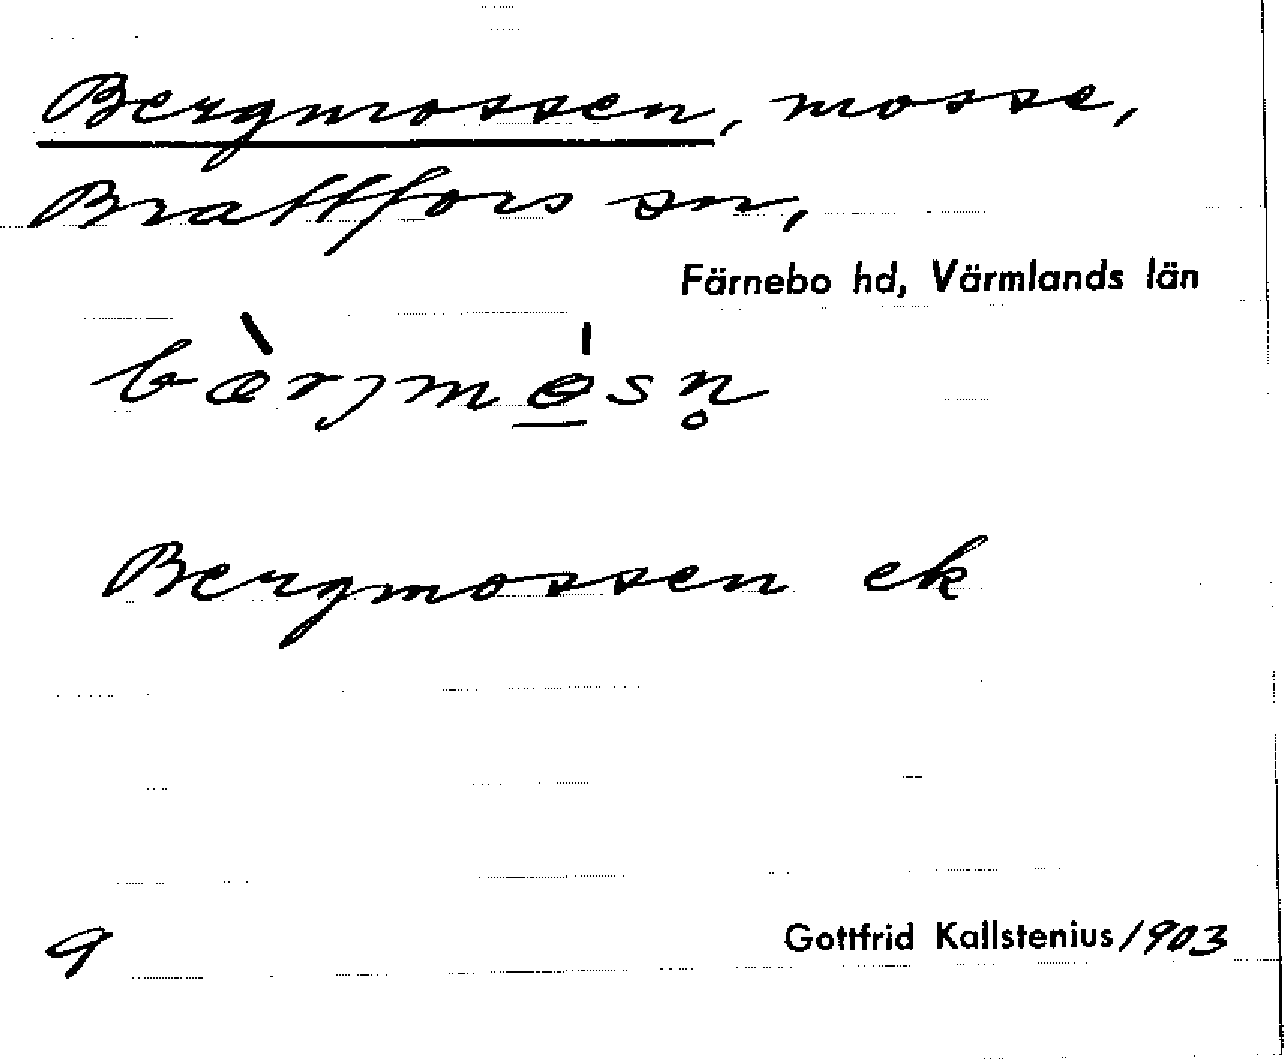 Bergmossen, mosse,
Brattfors sn,
Färnebo hd, Värmlands län
bæ̀rjmɵ̲́sn̥
Bergmossen ek
9
Gottfrid Kallstenius 1903